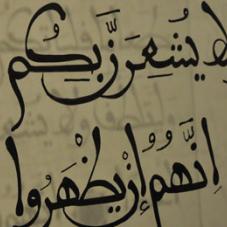 لا يُشْعِرَنَّ بِكُمُ
اِنَّهُمُ إِنْ يَظْهَرُوا